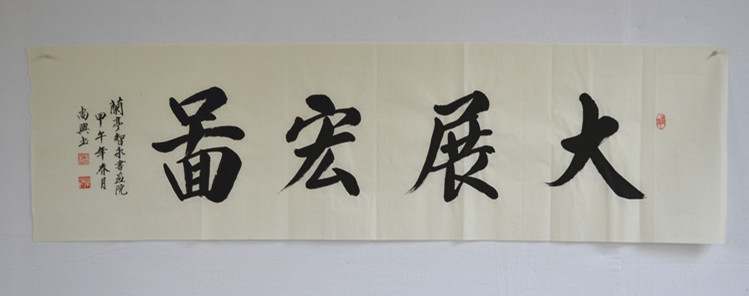 大展宏圖
蘭亭智永書画院
甲午年春月
尚興上